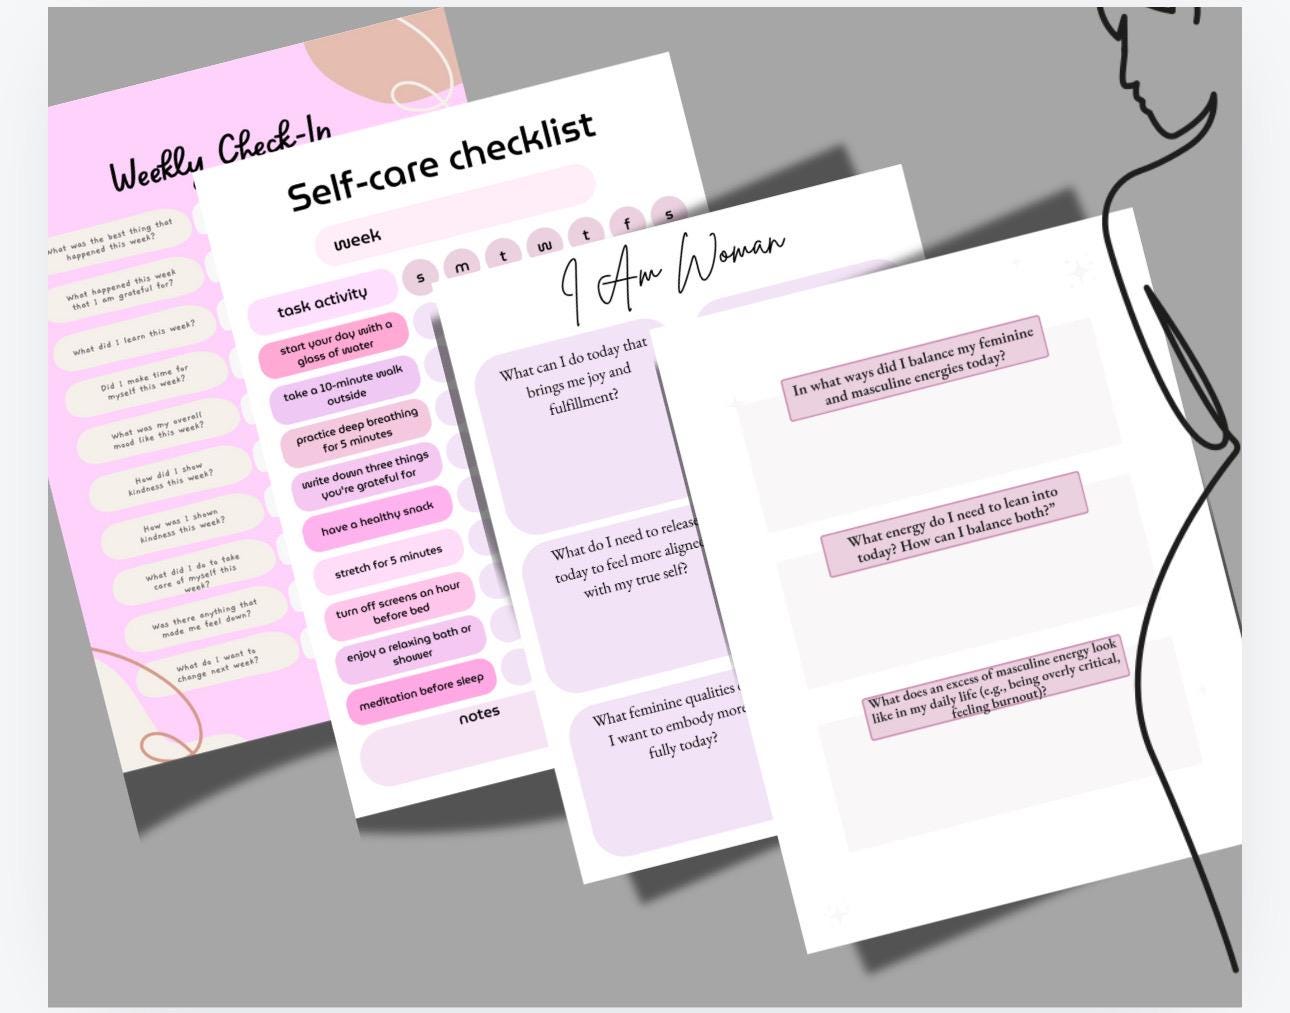 Weekly Check-In
What was the best thing that
happened this week?
What happened this week
that I am grateful for?
What did I learn this week?
Did I make time for
myself this week?
What was my overall
mood like this week?
How did I show
kindness this week?
How was I shown
kindness this week?
What did I do to take
care of myself this
week?
Was there anything that
made me feel down?
What do I want to
change next week?
Self-care checklist
week
task activity
s m t w t f s
start your day with a
glass of water
take a 10-minute walk
outside
practice deep breathing
for 5 minutes
write down three things
you're grateful for
have a healthy snack
stretch for 5 minutes
turn off screens an hour
before bed
enjoy a relaxing bath or
shower
meditation before sleep
notes
I Am Woman
What can I do today that
brings me joy and
fulfillment?
What do I need to release
today to feel more aligned
with my true self?
What feminine qualities
I want to embody more
fully today?
In what ways did I balance my feminine
and masculine energies today?
What energy do I need to lean into
today? How can I balance both?”
What does an excess of masculine energy look
like in my daily life (e.g., being overly critical,
feeling burnout)?